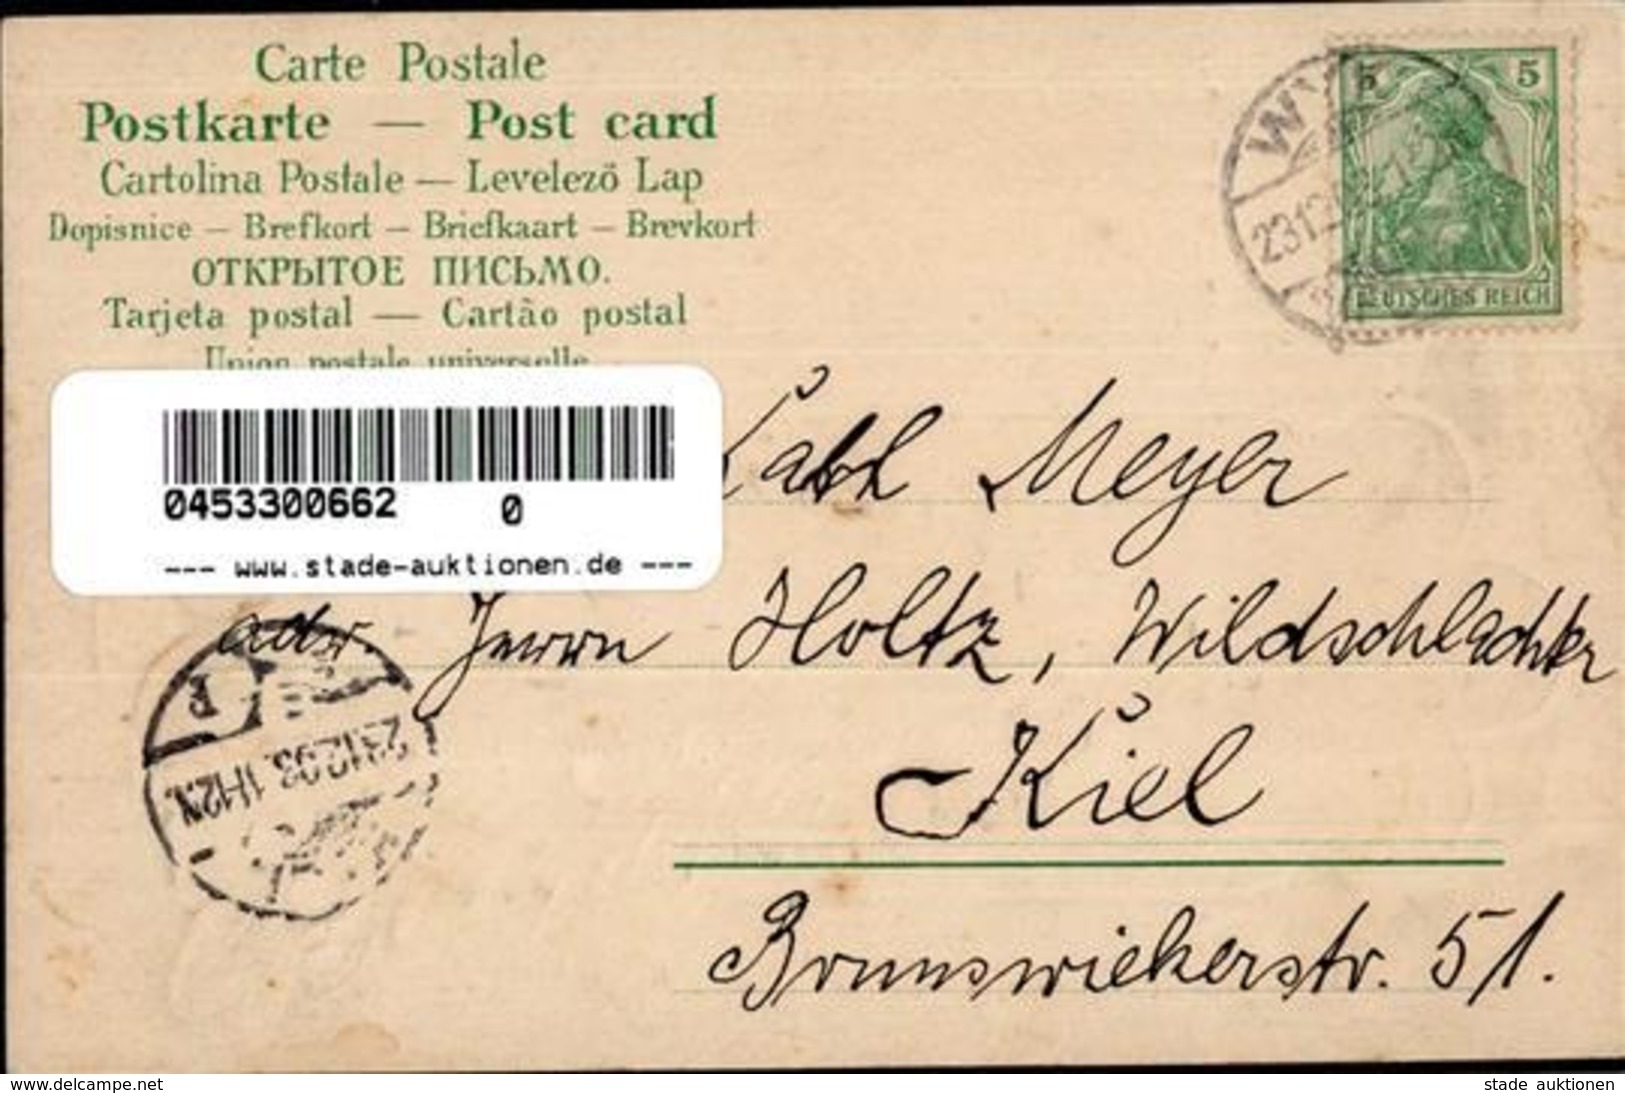 Carte Postale
Postkarte — Post card
Cartolina Postale — Levelező Lap
Dopisnice — Brefkort — Briefkaart — Brevkort
ОТКРЫТОЕ ПИСЬМО.
Tarjeta postal — Cartão postal
Union postale universelle
5 5
DEUTSCHES REICH
0453300662 0
--- www.stade-auktionen.de ---
Meyer
adr. Herrn Holtz, Wildschlachter
Kiel
Brunswiekerstr. 51.
23.12.03. 11-12N.
www.delcampe.net
stade auktionen